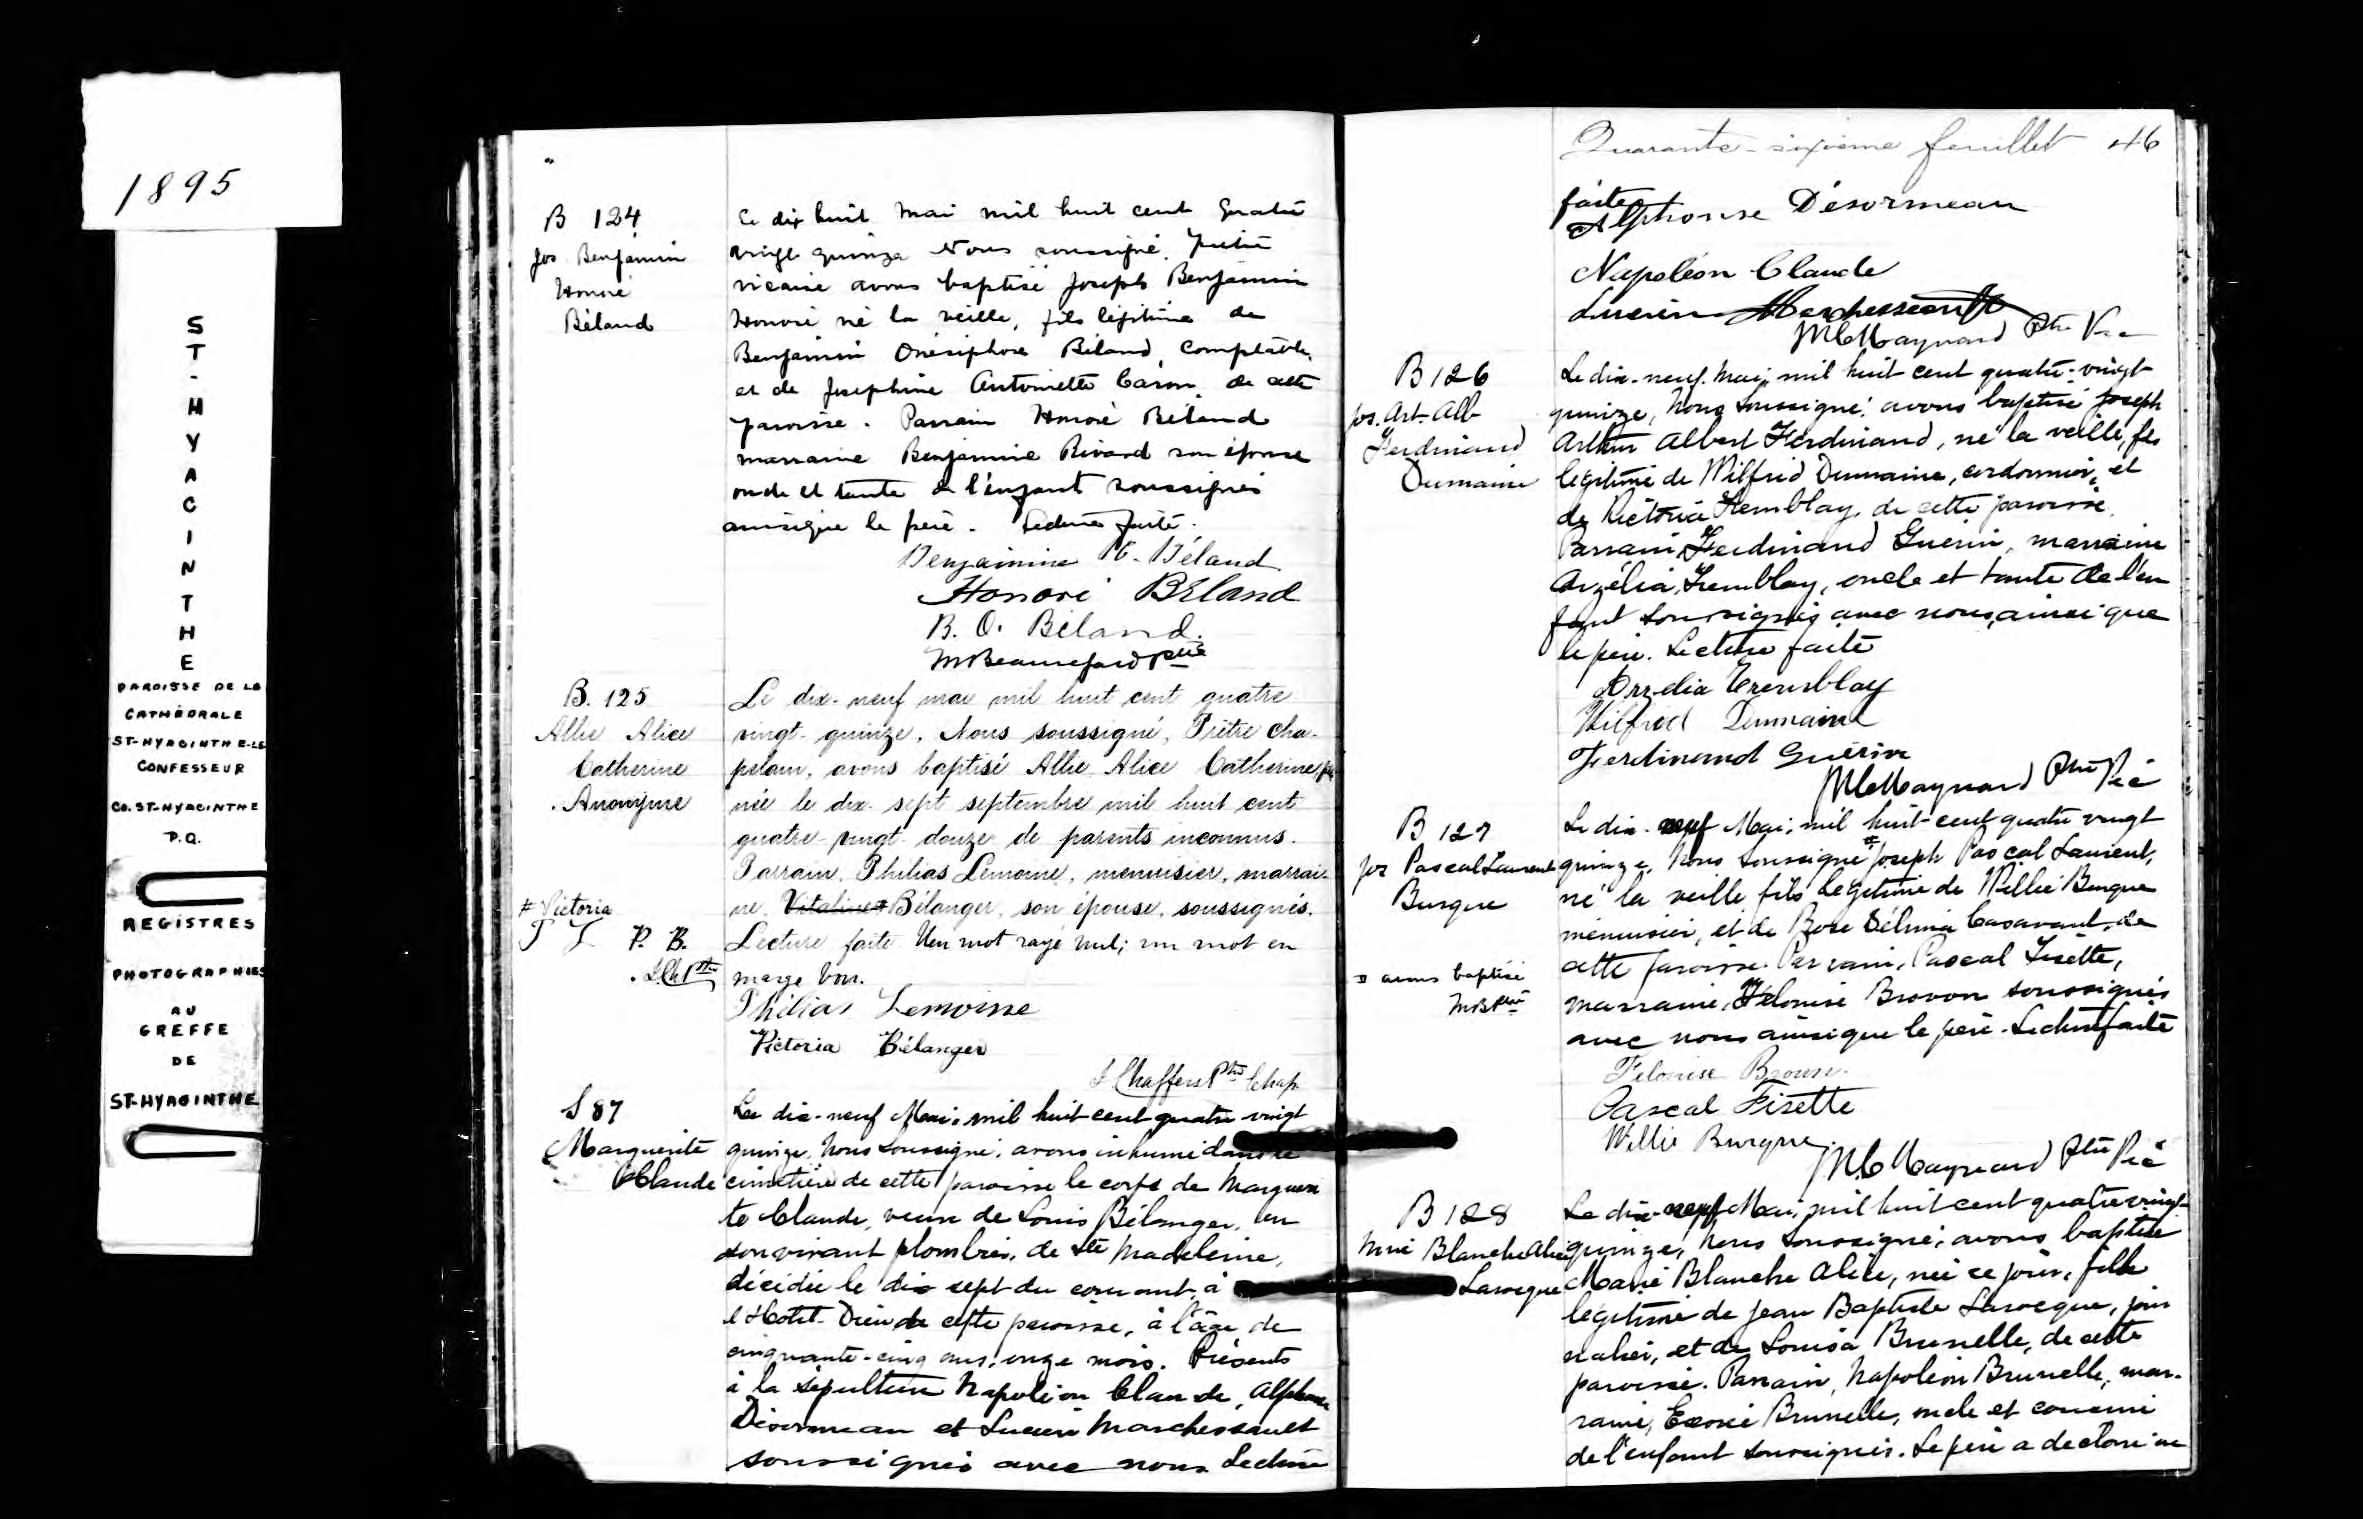 1895
ST-HYACINTHE
PAROISSE DE LA
CATHÉDRALE
ST-HYACINTHE-LE
CONFESSEUR
CO. ST-HYACINTHE
P.Q.
REGISTRES
PHOTOGRAPHIES
AU
GREFFE
DE
ST-HYACINTHE
B 124
Jos Benjamin
Honoré
Béland
Le dix huit mai mil huit cent quatre
vingt quinze Nous soussigné, prêtre
vicaire avons baptisé Joseph Benjamin
Honoré né la veille, fils légitime de
Benjamin Onésiphore Béland, comptable,
et de Joséphine Antoinette Caron de cette
paroisse. Parrain Honoré Béland
marraine Benjamine Rivard son épouse
oncle et tante de l'enfant soussignés
ainsi que le père. Lecture faite.
Benjamine R. Béland
Honoré Béland
B. O. Béland.
M Beauregard ptre
B. 125
Allie Alice
Catherine
Anonyme
Le dix-neuf mai mil huit cent quatre
vingt-quinze, Nous soussigné, Prêtre cha-
pelain, avons baptisé Allie Alice Catherine
née le dix-sept septembre mil huit cent
quatre-vingt-douze de parents inconnus.
Parrain, Philias Lemoine, menuisier, marrai-
ne, Vitaline # Bélanger, son épouse, soussignés.
Lecture faite. Un mot rayé nul; un mot en
marge bon.
# Victoria
P. L. P. B.
Philias Lemoine
Victoria Bélanger
Chaffers Ptre Chap.
S 87
Marguerite
Claude
Le dix-neuf Mai, mil huit cent quatre vingt
quinze, Nous soussigné, avons inhumé dans le
cimetière de cette paroisse le corps de Margueri
te Claude, veuve de Louis Bélanger, en
son vivant plombier, de Ste Madeleine,
décédée le dix sept du courant, à
l'Hôtel-Dieu de cette paroisse, à l'âge de
cinquante-cinq ans, onze mois. Présents
à la sépulture Napoléon Claude, Alphonse
Désormeau et Lucien Marchessault
soussignés avec nous. Lecture
Quarante-sixième feuillet 46
faite
Alphonse Désormeau
Napoléon Claude
Lucien Marchessault
MCMaynard Ptre Vic
B 126
Jos. Art. Alb
Ferdinand
Dumaine
Le dix-neuf Mai, mil huit cent quatre-vingt
quinze, Nous soussigné, avons baptisé Joseph
Arthur Albert Ferdinand, né la veille, fils
légitime de Wilfrid Dumaine, cordonnier, et
de Victoria Tremblay, de cette paroisse.
Parrain, Ferdinand Guérin, marraine
Arzélia Tremblay, oncle et tante de l'en
fant soussignés avec nous, ainsi que
le père. Lecture faite
Arzelia Tremblay
Wilfrid Dumaine
Ferdinand Guérin
MCMaynard Ptre Vic
B 127
Jos Pascal Laurent
Burque
Le dix-neuf Mai, mil huit-cent quatre vingt
quinze, Nous soussigné # Joseph Pascal Laurent,
né la veille fils légitime de Willie Burque
menuisier, et de Rose Délima Casavant, de
cette paroisse. Parrain, Pascal Fisette,
marraine, Félonise Brovon soussignés
avec nous ainsi que le père. Lecture faite
# avons baptisé
MB ptre
Felonise Brown.
Pascal Fisette
Willie Burque
MC Maynard Ptre Vic
B 128
Mrie Blanche Alice
Larocque
Le dix-neuf Mai, mil huit cent quatre vingt-
quinze, Nous soussigné, avons baptisé
Marie Blanche Alice, née ce jour, fille
légitime de Jean Baptiste Larocque, jour
nalier, et de Louisa Brunelle, de cette
paroisse. Parrain, Napoléon Brunelle, mar-
raine, Brunelle, oncle et cousine
de l'enfant soussignés. Le père a déclaré ne